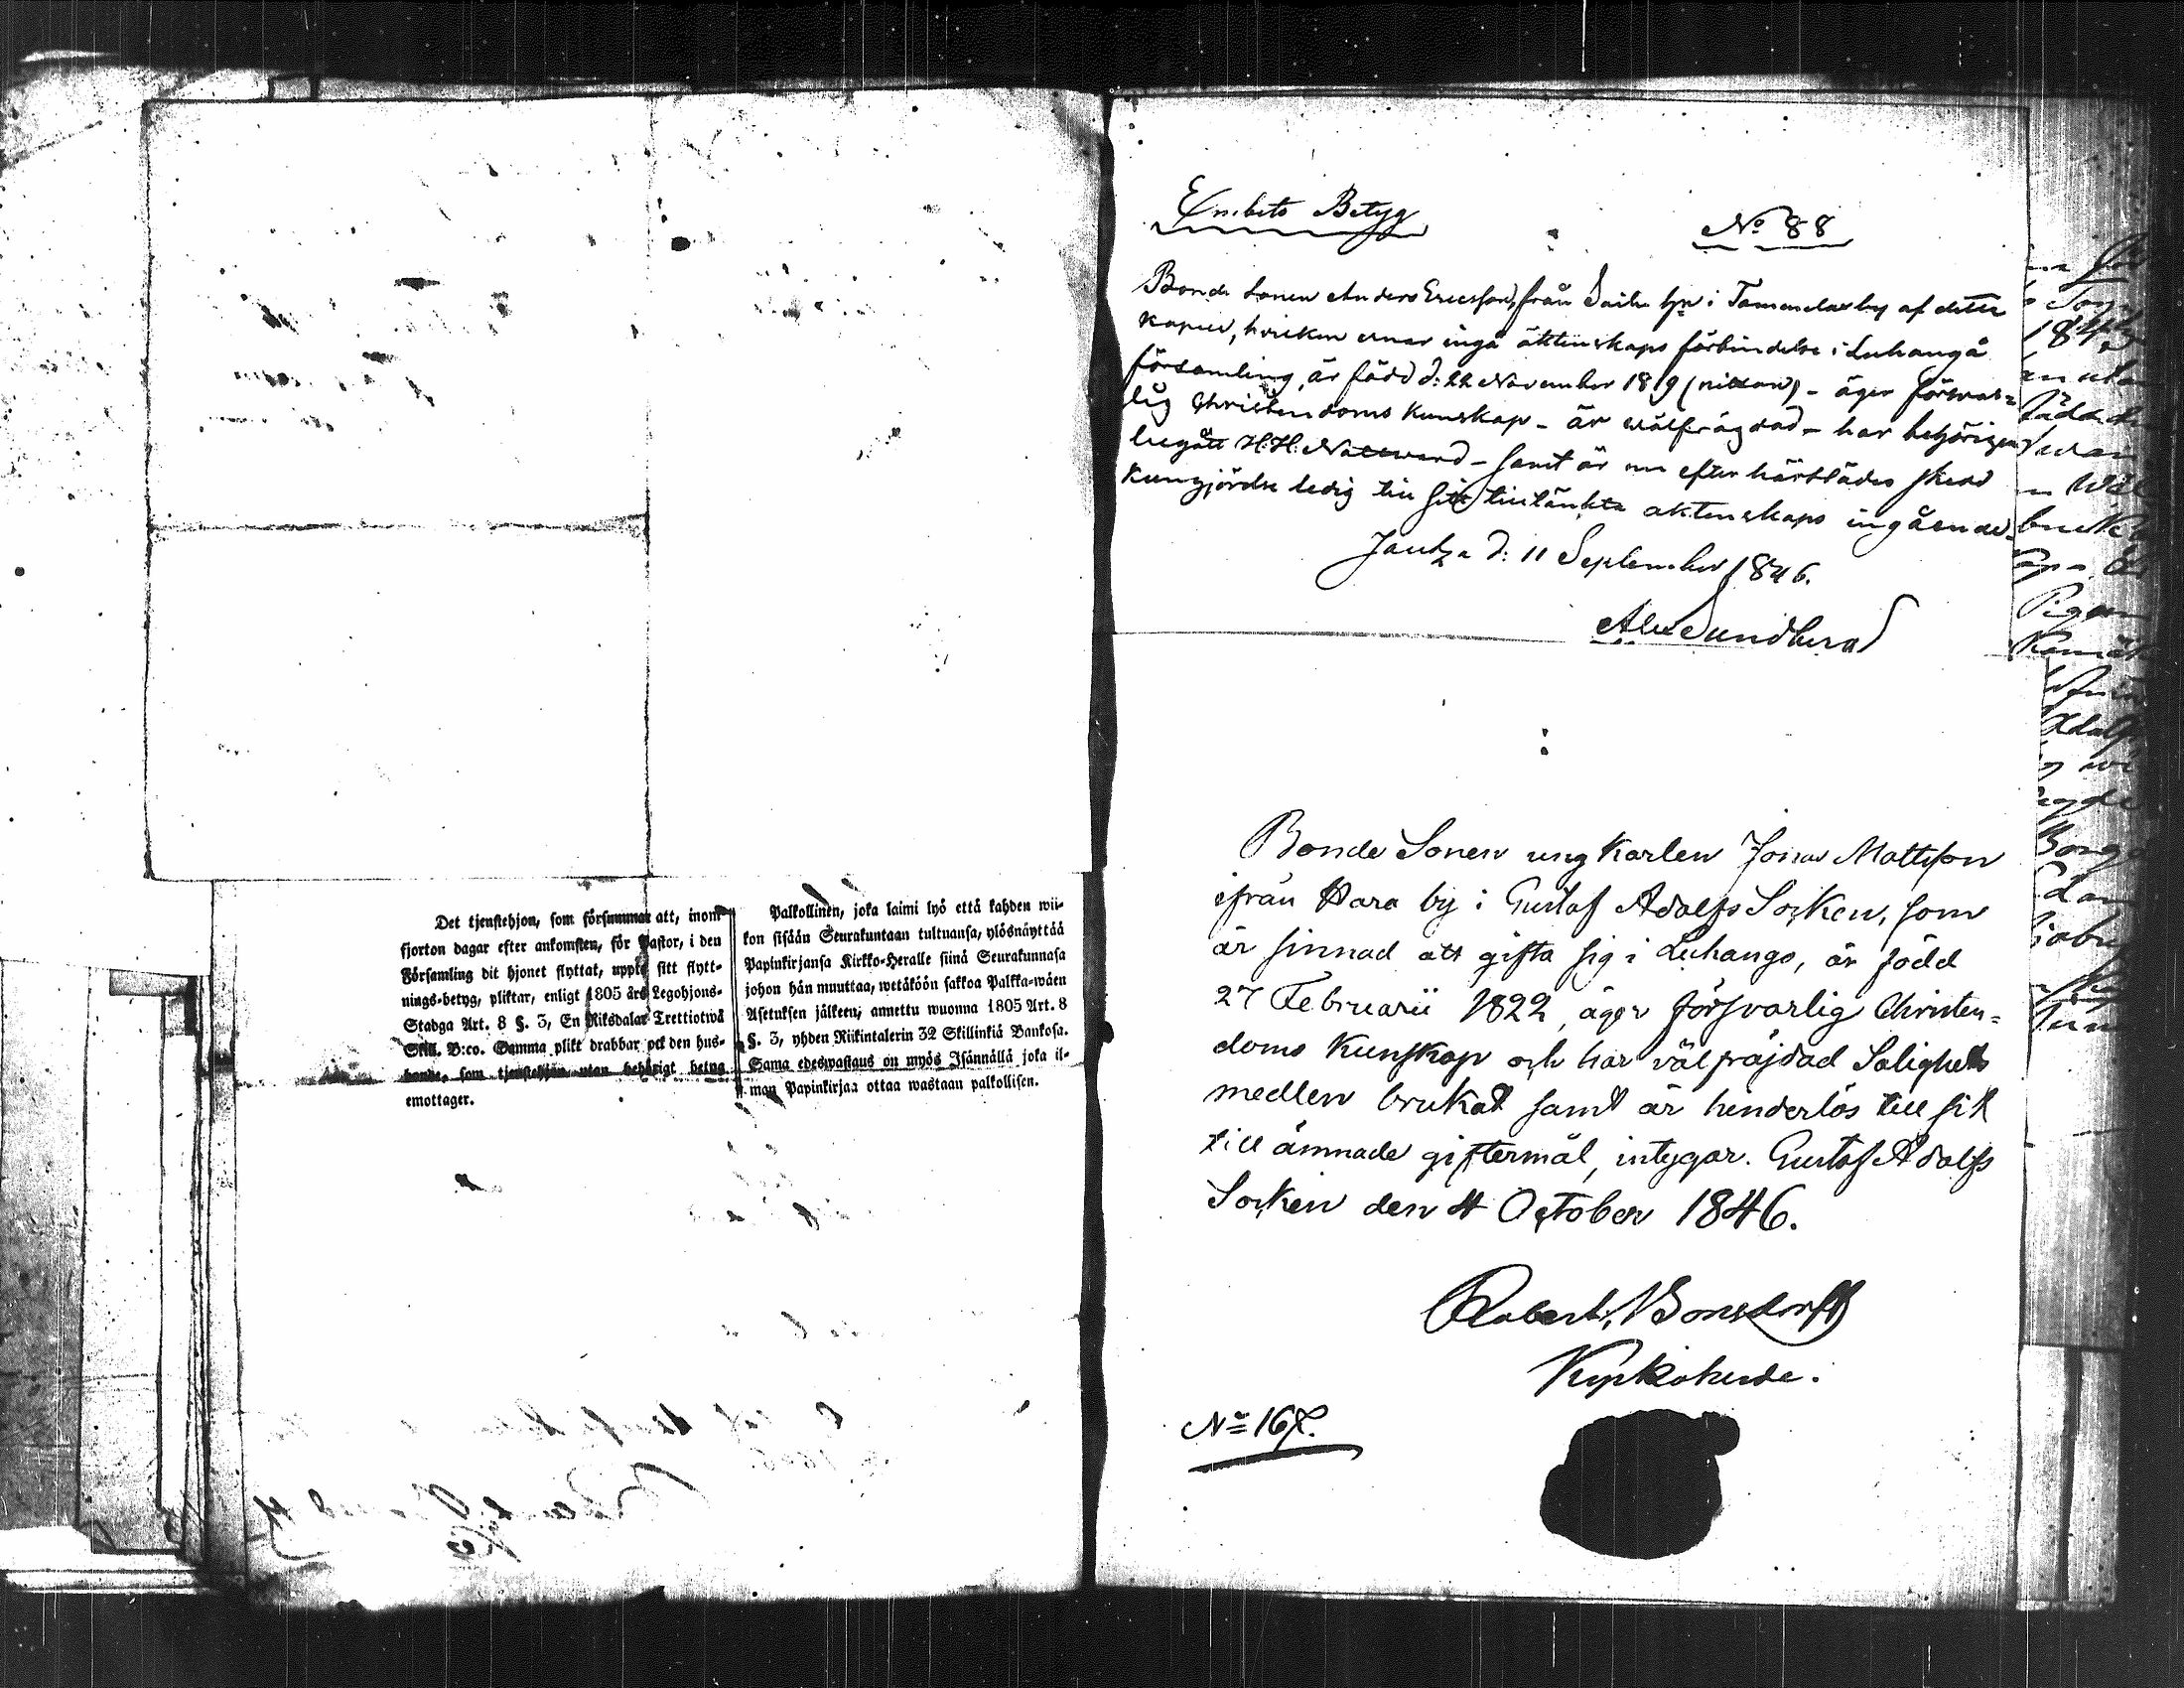 Det tjenstehjon, som försummar att, inom
fjorton dagar efter ankomsten, för Pastor, i den
Församling dit hjonet flyttat, uppte sitt flytt-
nings-betyg, pliktar, enligt 1805 års Legohjons-
Stadga Art. 8 §. 3, En Riksdaler Trettiotwå
Skill. B:co. Samma plikt drabbar ock den hus-
bonde, som tjenstehjon utan behörigt betyg
emottager.
Palkollinen, joka laimi lyö että kahden wii-
kon sisään Seurakuntaan tultuansa, ylösnäyttää
Papinkirjansa Kirkko-Heralle siinä Seurakunnasa
johon hän muuttaa, wetäköön sakkoa Palkka-wäen
Asetuksen jälkeen, annettu wuonna 1805 Art. 8
§. 3, yhden Riikintalerin 32 Skillinkiä Bankosa.
Sama edeswastaus on myös Isännällä joka il-
man Papinkirjaa ottaa wastaan palkollisen.
Embets Betyg
No 88
Bonde Sonen Anders Ericsson, från i Tammelax by af detta
Kapell, hvilken ernar ingå äktenskaps förbindelse i Luhangå
församling, är född d: 22 November 1819 (nittan) - äger försvar=
lig Christendoms Kunskap - är wälfrägdad - har behörigen
begått H.H. Nattward - samt är nu efter härstädes skedd
Kungjördse ledig till sitt tilltänkta äktenskaps ingående.
Joutza d: 11 September 1846.
Alex Sundberg
Bonde Sonen ung Karlen Jonas Mattsson
ifrån Hara by i Gustaf Adolfs Socken, som
är sinnad att gifta sig i Luhango, är född
27 Februarii 1822, äger försvarlig Christen=
doms Kunskap och har välfräjdad Salighets
medlen brukat samt är hinderlös till sitt
till ämnade giftermål, intygar. Gustaf Adolfs
Socken den 4 October 1846.
Robert Bonsdorff
Kyrkoherde.
No 167.